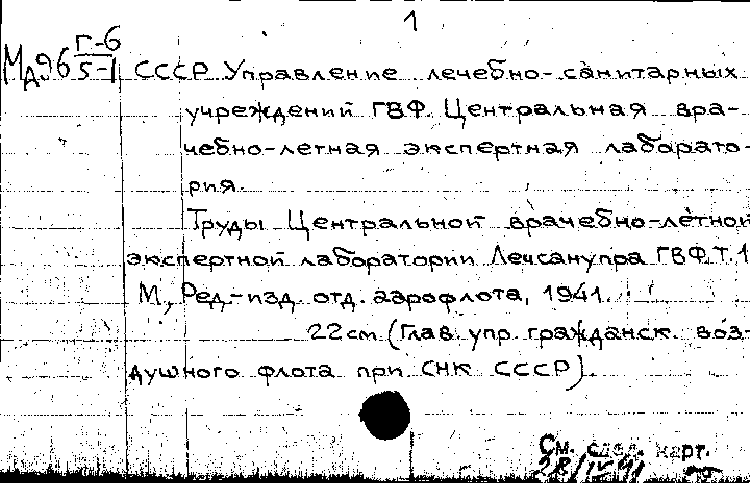 1
МД96 Г-6
5-1 СССР Управление лечебно-санитарных
учреждений ГВФ. Центральная вра-
чебно-летная экспертная лаборато-
рия.
Труды Центральной врачебно-летной
экспертной лаборатории Лечсанупра ГВФ. Т. 1
М., Ред.-изд. отд. аэрофлота, 1941.
22 cm (Глав. упр. гражданск. воз-
душного флота при СНК СССР).
См. след. карт.
28/IV 41